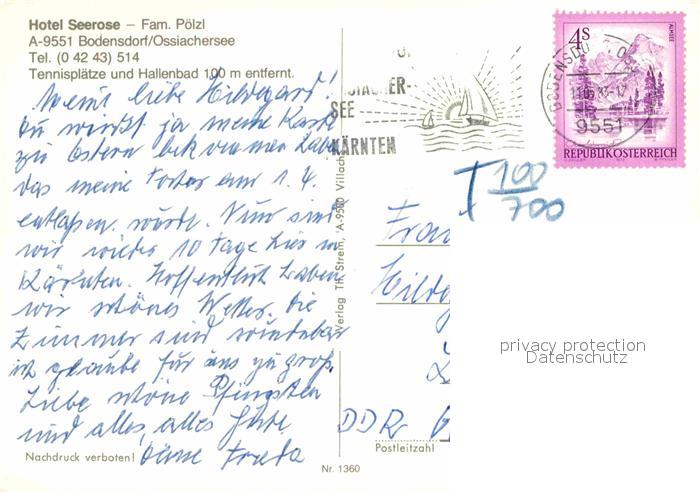 Hotel Seerose – Fam. Pölzl
A-9551 Bodensdorf/Ossiachersee
Tel. (0 42 43) 514
Tennisplätze und Hallenbad 100 m entfernt.
liebe Hildegard!
Du wirst ja meine Karte
zu Ostern bekommen haben
das meine am 1. 4.
entlassen wurde. Nun sind
wir wieder 10 Tage hier in
Kärnten. Hoffentlich haben
wir schönes Wetter. Die
Zimmer sind wunderbar
ich glaube für uns zu groß.
Liebe schöne Pfingsten
und alles, alles Gute
Deine Freda
Nachdruck verboten!
Nr. 1360
Verlag Th. Streim, A-9500 Villach
SEE
KÄRNTEN
9551
4S
ALMSEE
REPUBLIK ÖSTERREICH
T 100
700
Frau
Hilde
DDR
Postleitzahl
privacy protection
Datenschutz